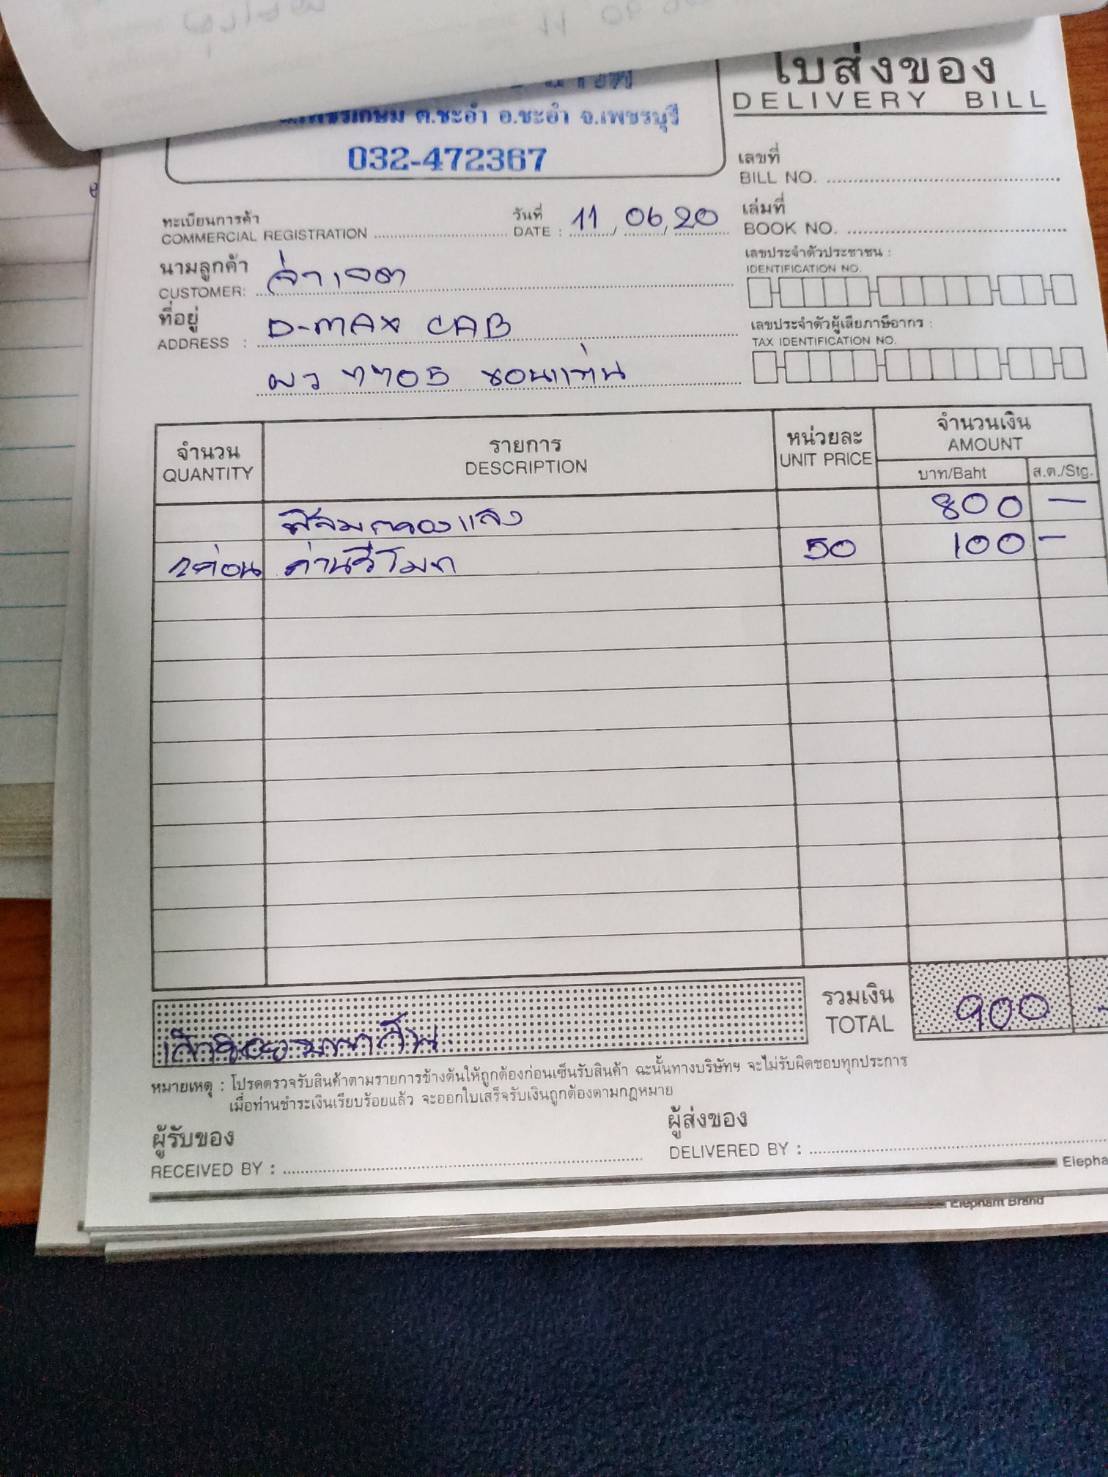 ใบส่งของ
DELIVERY BILL
ต.ชะอำ อ.ชะอำ จ.เพชรบุรี
032-472367
เลขที่
BILL NO.
ทะเบียนการค้า
COMMERCIAL REGISTRATION
วันที่
DATE : 11, 06, 20
เล่มที่
BOOK NO.
นามลูกค้า
CUSTOMER: จ่าเจต
เลขประจำตัวประชาชน :
IDENTIFICATION NO.
ที่อยู่
ADDRESS : D-MAX CAB
เลขประจำตัวผู้เสียภาษีอากร :
TAX IDENTIFICATION NO.
ผว 7705 ขอนแก่น
จำนวน
QUANTITY
รายการ
DESCRIPTION
หน่วยละ
UNIT PRICE
จำนวนเงิน
AMOUNT
บาท/Baht
ส.ต./Stg.
ฟิล์มกรองแสง 800 –
2ก้อน ถ่านรีโมท 50 100 –
รวมเงิน
TOTAL 900 -
หมายเหตุ : โปรดตรวจรับสินค้าตามรายการข้างต้นให้ถูกต้องก่อนเซ็นรับสินค้า ฉะนั้นทางบริษัทฯ จะไม่รับผิดชอบทุกประการ
เมื่อท่านชำระเงินเรียบร้อยแล้ว จะออกใบเสร็จรับเงินถูกต้องตามกฎหมาย
ผู้รับของ
RECEIVED BY :
ผู้ส่งของ
DELIVERED BY :
Elepha
Elephant Brand